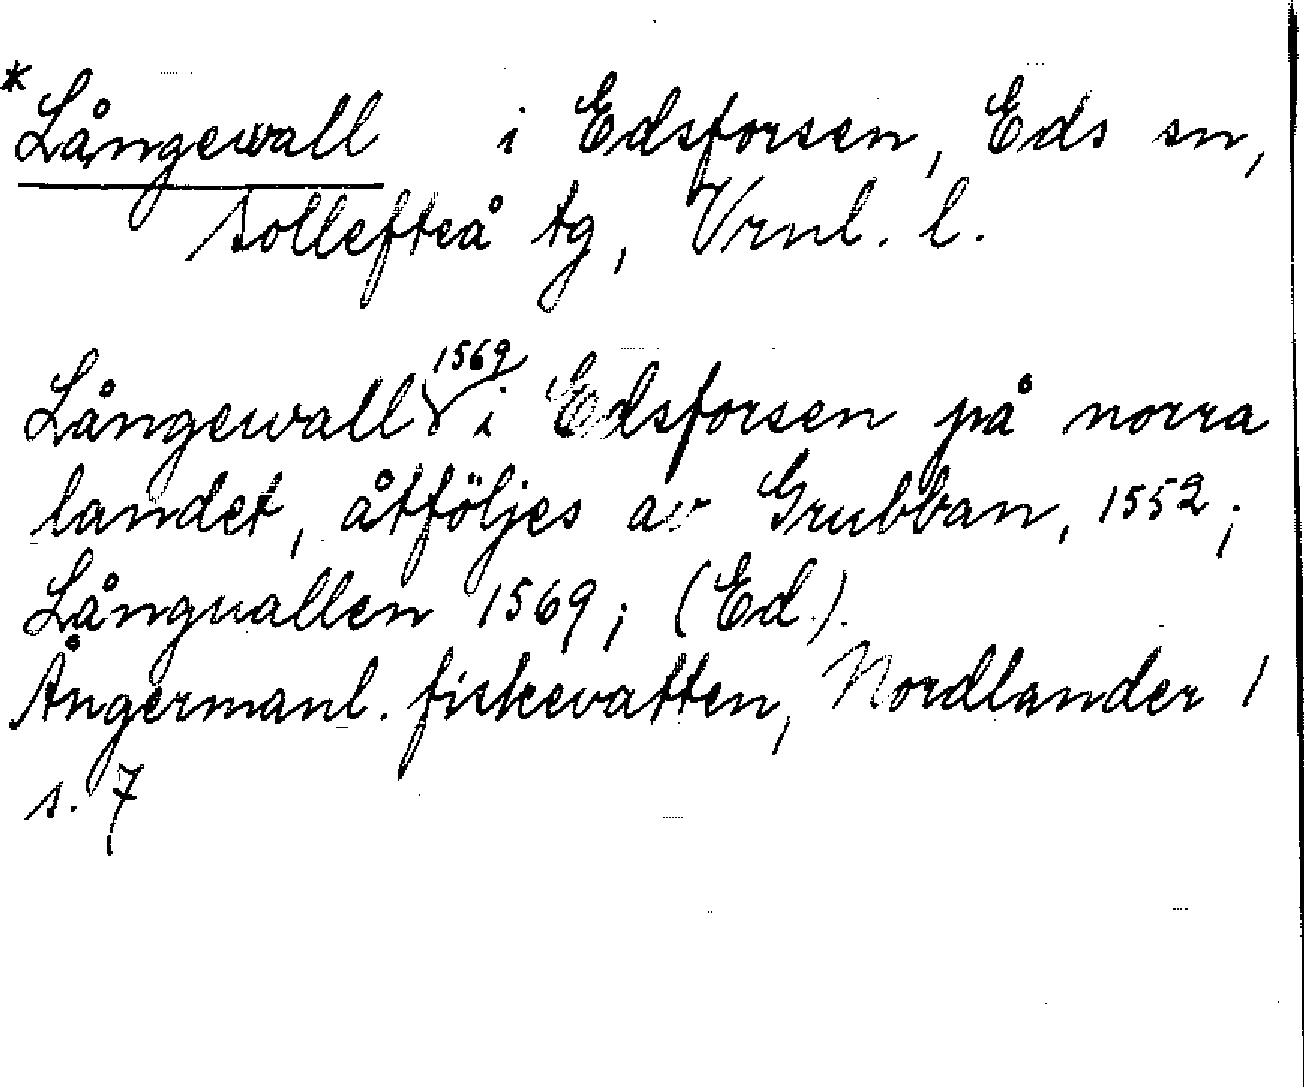 *Långewall i Edsforsen, Eds sn,
Sollefteå tg, Vrnl. l.
Långewall 1569 i Edsforsen på norra
landet, åtföljes av Grubban, 1552;
Långuallen 1569; (Ed.).
Ångermanl. fiskevatten, Nordlander 1
s. 7